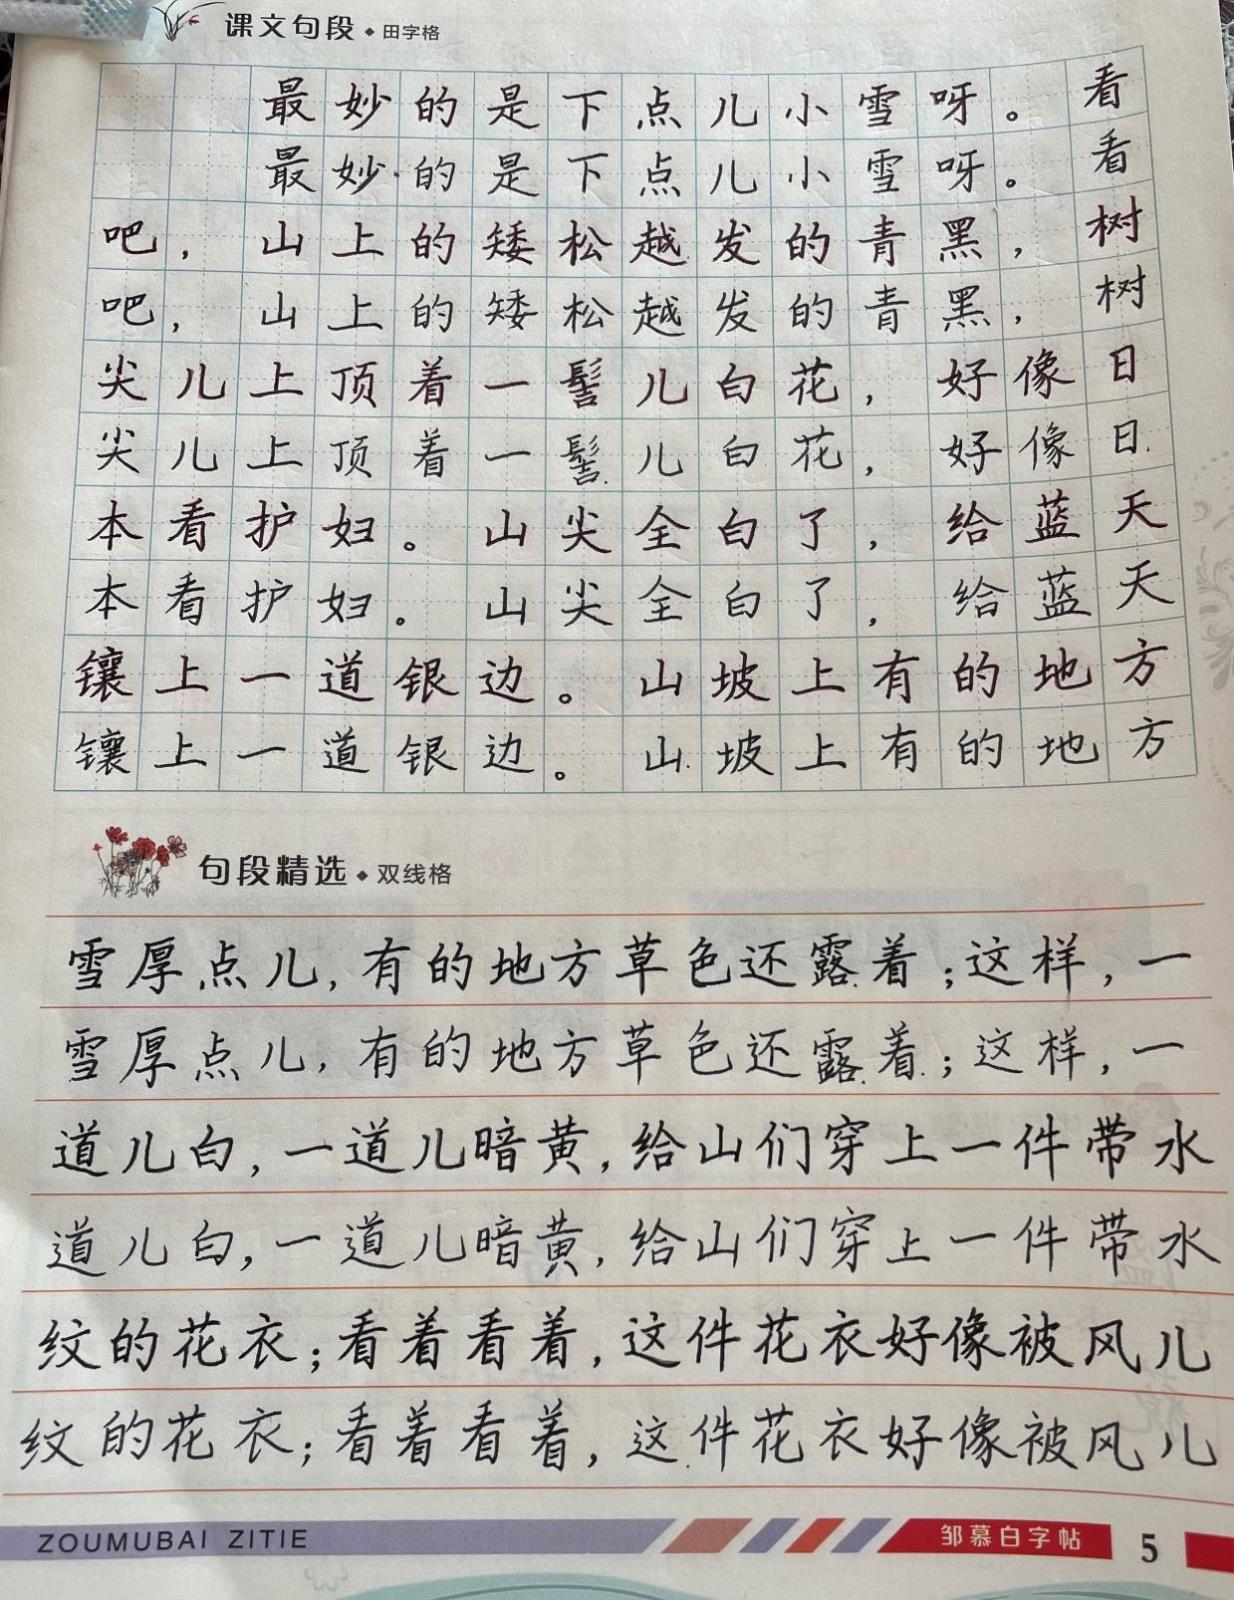 课文句段◆田字格
最妙的是下点儿小雪呀。看
最妙的是下点儿小雪呀。看
吧，山上的矮松越发的青黑，树
吧，山上的矮松越发的青黑，树
尖儿上顶着一髻儿白花，好像日
尖儿上顶着一髻儿白花，好像日
本看护妇。山尖全白了，给蓝天
本看护妇。山尖全白了，给蓝天
镶上一道银边。山坡上有的地方
镶上一道银边。山坡上有的地方
句段精选◆双线格
雪厚点儿，有的地方草色还露着；这样，一
雪厚点儿，有的地方草色还露着；这样，一
道儿白，一道儿暗黄，给山们穿上一件带水
道儿白，一道儿暗黄，给山们穿上一件带水
纹的花衣；看着看着，这件花衣好像被风儿
纹的花衣；看着看着，这件花衣好像被风儿
ZOUMUBAI ZITIE 邹慕白字帖 5